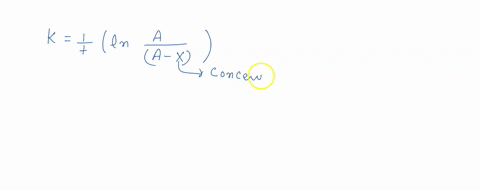 K = 1/t ( ln A/(A-x) )
→ concen